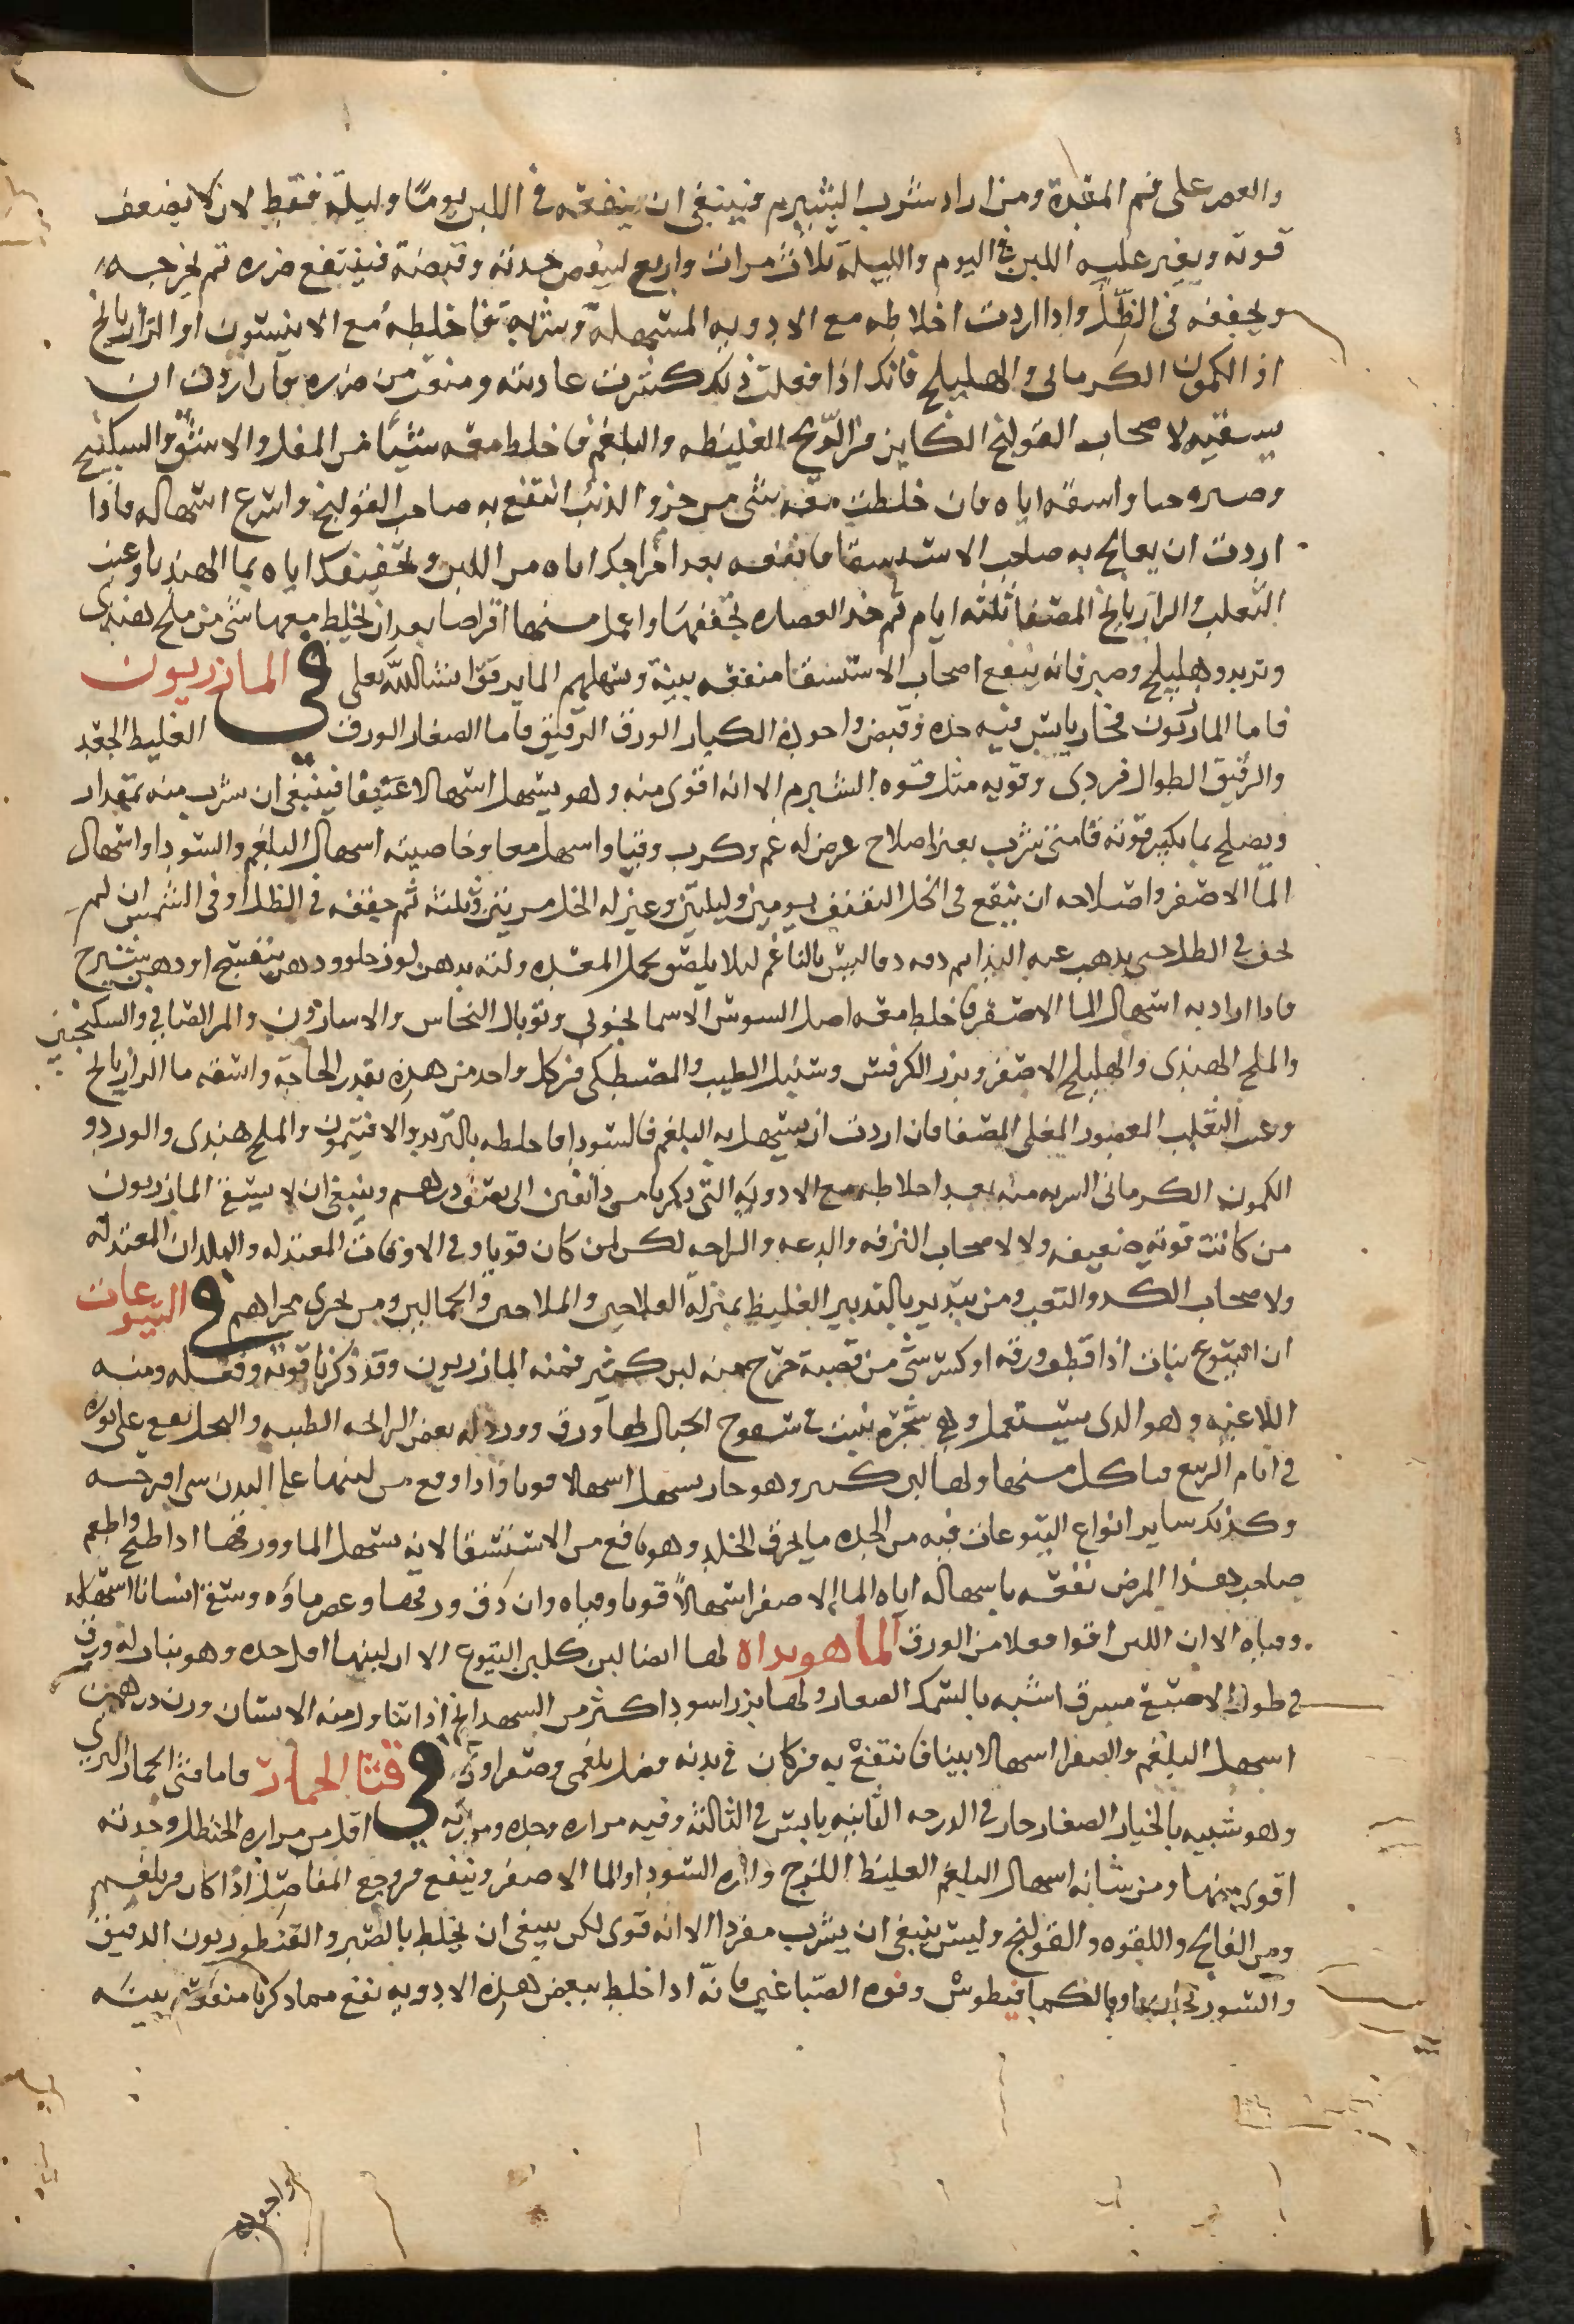 والعصر على فم المعدة ومن اراد شرب الشبرم فينبغي ان ينقعه في اللبن يومًا وليلة فقط لان لا يضعف
قوته ويغير عليه اللبن في اليوم والليلة ثلاث مرات واربع لينقص حدته وقبضه فينتفع ضرره ثم يخرجه
ويجففه في الظل واذا اردت اخلاطه مع الادويه المسهلة وشربه فاخلطه مع الانيسون او الرازيانج
او الكمون الكرماني والهليلج فانك اذا فعلت ذلك كسرت عاديته ومنعت من ضرره فان اردت ان
يسقيه لاصحاب القولنج الكاين من الريح الغليظه والبلغم فاخلط معه شيئا من المقل والاشق والسكبينج
وصيره حبا واسقه اياه فان خلطت معه شي من خرو الذئب انتفع به صاحب القولنج واسرع اسهاله فاذا
اردت ان يعالج به صاحب الاستسقا فانقعه بعد اخراجك اياه من اللبن وتجفيفك اياه بما الهندبا وعنب
الثعلب والرازيانج المصفا ثلثه ايام ثم خذ العصاره تجففها واعمل منها اقراصا بعد ان تخلط معها شي من ملح هندي
وتربد وهليلج وصبر فانه ينفع اصحاب الاستسقا منفعه بينة وتسهلهم الما برفق انشا الله تعلى في المازريون
فاما المازريون فحار يابس فيه حده وقبض واجوده الكبار الورق الرقيق فاما الصغار الورق الغليظ الجعد
والرقيق الطوال فردي وقوته مثل قوه الشبرم الا انه اقوى منه وهو يسهل اسهالا عنيفا فينبغي ان شرب منه بمقدار
ويصلح بما يكسر قوته فامتى شرب بغير اصلاح عرض له غم وكرب وقيا واسهل معا وخاصيته اسهال البلغم والسودا واسهال
الما الاصفر واصلاحه ان ينقع في الخل الثقيف يومين وليلتين وغير له الخل مرتين وثلثه ثم جففه في الظل او في الشمس ان لم
يجف في الظل حتى يذهب عنه ثم دقه دقا ليس بالناعم ليلا يلصق بخمل المعده ولته بدهن لوز حلو ودهن بنفسج او دهن شيرج
فاذا اراد به اسهال الما الاصفر فاخلط معه اصل السوس الاسمانجوني وتوبال النحاس والاسارون والمر الصافي والسكبنج
والملح الهندي والهليلج الاصفر وبزر الكرفس وسنبل الطيب والمصطكي من كل واحد من هذه بقدر الحاجة واسقه ما الرازيانج
وعنب الثعلب المعصور المغلي المصفا فان اردت ان يسهل به البلغم فالسودا فاخلطه بالتربد والافتيمون والملح هندي والورد و
الكمون الكرماني الشربه منه بعد اخلاطه مع الادويه التي ذكرنا من دانقين الى نصف درهم وينبغي ان لا يسقى المازريون
من كانت قوته ضعيفه ولا لاصحاب الترفه والدعه والراحه لكن لمن كان قويا وفي الاوقات المعتدله والبلدان المعتدله
ولاصحاب الكد والتعب ومن يتدبر بالتدبير الغليظ بمنزلة الفلاحين والملاحين والحمالين ومن يجري مجراهم في اليتوعات
ان اليتوع نبات اذا قطع ورقه او كسر شي من قصبه خرج منه لبن كثير فمنه المازريون وقد ذكرنا قوته وفعله ومنه
اللاعنه وهو الذي يستعمل وفي شجره تنبت في سفوح الجبال لها ورق وورد له بعض الرايحه الطيبه والنحل تقع على نوره
في ايام الربيع فتاكل منها ولها لبن كثير وهو حار يسهل اسهالا قويا واذا وقع من لبنها على البدن شي اقرحه
وكذلك ساير انواع اليتوعات فيه من الحده ما يحرق الجلد وهو نافع من الاستسقا لانه يسهل الما وورقها اذا طبخ واطعم
صاحب هذا المرض نفعه باسهاله اياه الما الاصفر اسهالًا قويا وقياه وان دق ورقها وعصر ماؤه وسقي انسانا اسهله
وقياه الا ان اللبن اقوا فعلا من الورق الماهوبداه لها ايضا لبن كلبن اليتوع الا ان لبنها اقل حده وهو نبات له ورق
في طول الاصبع مبرق اشبه بالسمك الصغار ولها بزر اسود اكثر من السهدانج اذا تناول منه الانسان وزن درهمين
اسهل البلغم والصفرا اسهالا بينا فانتفع به من كان في بدنه فضل بلغمي وصفراوي في قثا الحمار فاما قثى الحمار البري
وهو شبيه بالخيار الصغار حار في الدرجه الثانيه يابس في الثالثة وفيه مراره وحده ومرارته اقل من مراره الحنظل وحدته
اقوى منها ومن شانه اسهال البلغم الغليظ اللزج والمره السودا والما الاصفر وينفع من وجع المفاصل اذا كان من بلغم
ومن الفالج واللقوه والقولنج وليس ينبغي ان يشرب مفردا الا انه قوى لكن ينبغي ان يخلط بالصبر والقنطوريون الدقيق
والسورنجان او بالكمافيطوس وفوه الصباغين فانه اذا خلط ببعض هذه الادويه نفع مما ذكرنا منفعة بينه
واجوده